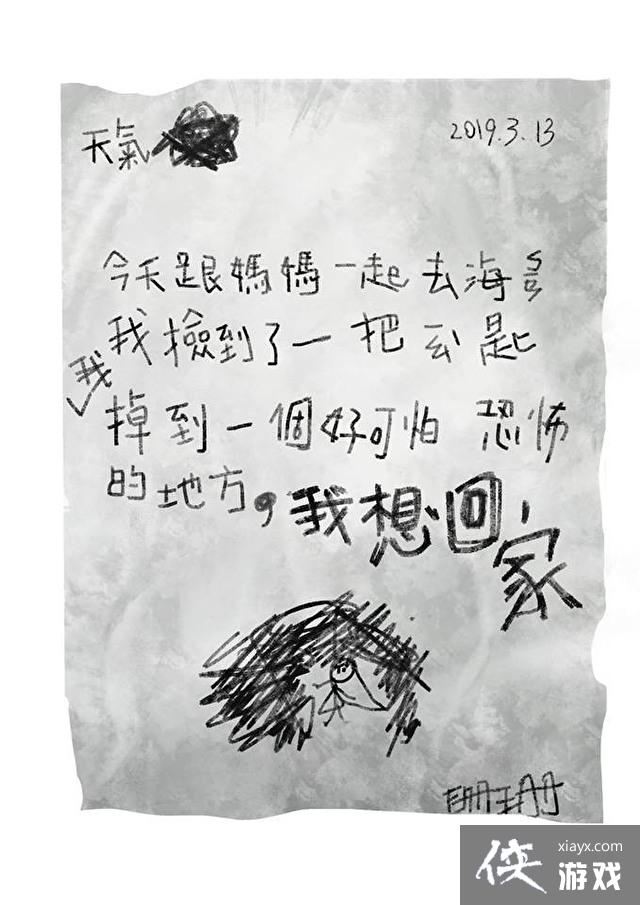 天氣
2019.3.13
今天跟媽媽一起去海
我撿到了一把ㄧㄠˋ匙
我
掉到一個好可怕 恐怖
的地方，我想回家
珊珊
侠 xiayx.com
游戏